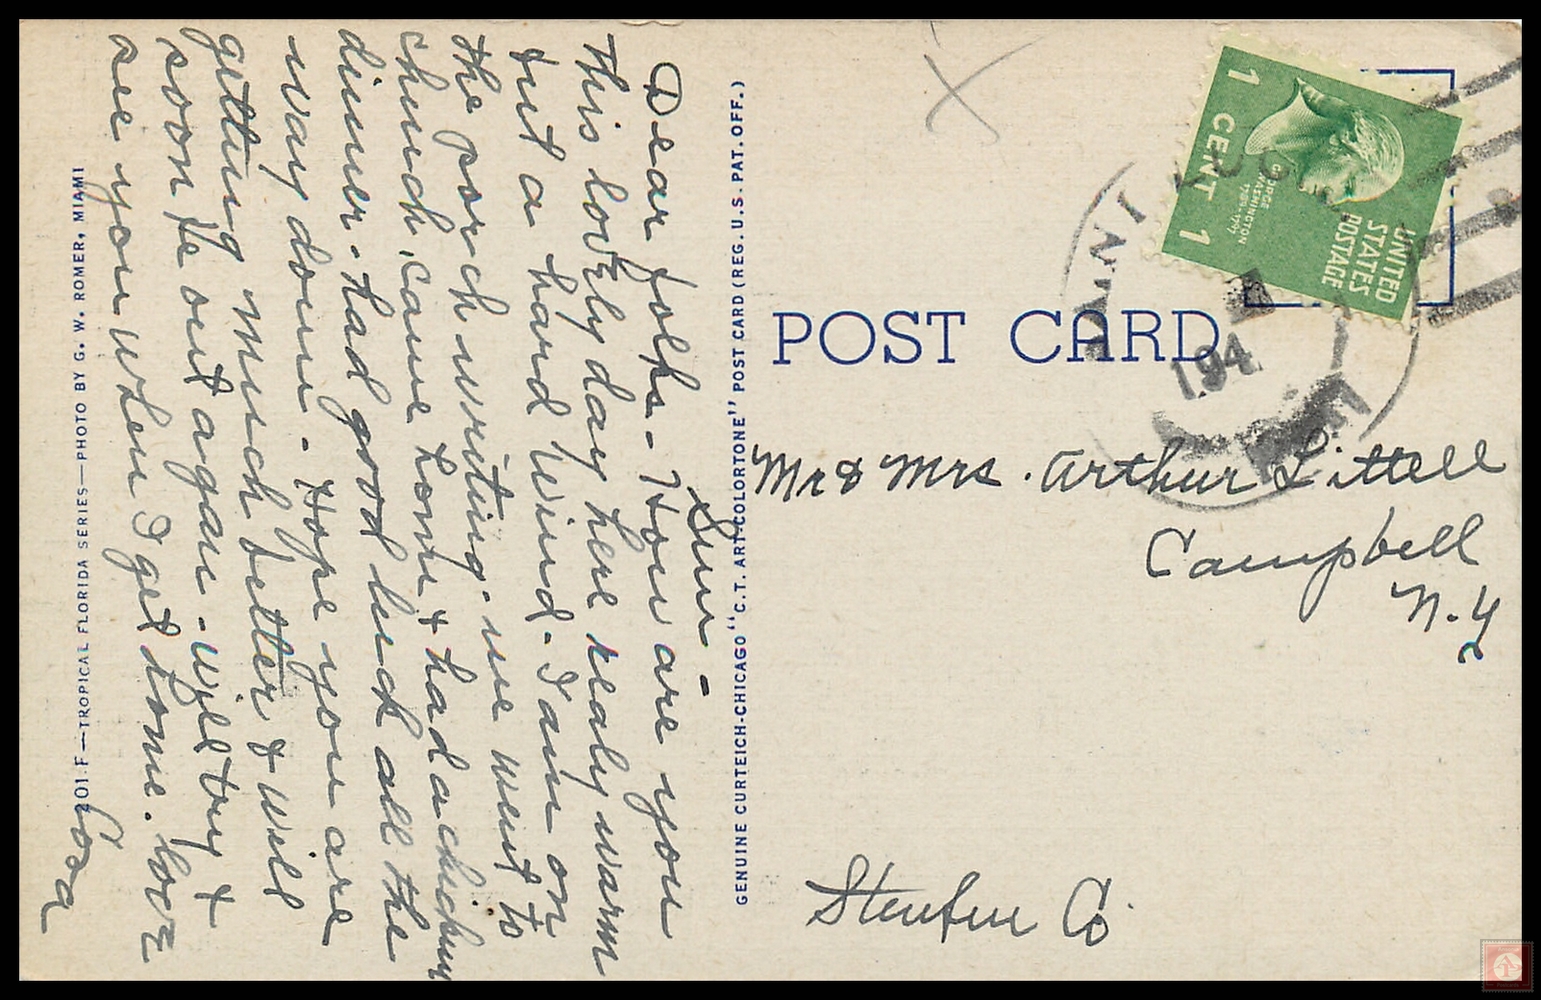 Sun -
Dear folks - How are you
this lovely day here realy warm
but a hard wind - I am on
the porch writing. we went to
church, came home & had a chicken
dinner - had good luck all the
way down - Hope you are
getting much better & will
soon be out again - will try &
see you when I get home. Love
Cora
201 F—TROPICAL FLORIDA SERIES—PHOTO BY G. W. ROMER, MIAMI
GENUINE CURTEICH-CHICAGO "C.T. ART-COLORTONE" POST CARD (REG. U.S. PAT. OFF.)
POST CARD
UNITED
STATES
POSTAGE
GEORGE
WASHINGTON
1789-1797
1 CENT 1
194
Mr & Mrs. Arthur Littell
Campbell
N.Y
Steuben Co.